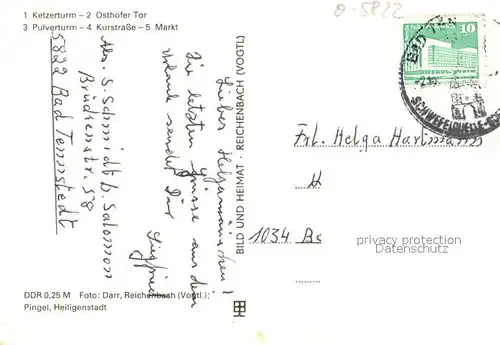 1 Ketzerturm – 2 Osthöfer Tor
3 Pulverturm – 4 Kurstraße – 5 Markt
Abs. S. Schmidt b. Salomon
Brückenstr. 58
5822 Bad Tennstedt
Liebes Helgamäuschen!
Die letzten Grüsse aus dem
Urlaub sendet Dir
Siegfried
DDR 0,25 M Foto: Darr, Reichenbach (Vogtl.);
Pingel, Heiligenstadt
BILD UND HEIMAT · REICHENBACH (VOGTL)
0-5822
10
BAD TEN
SCHWEFELQUELLE
Frl. Helga Hartmann
1034 Be
privacy protection
watermark